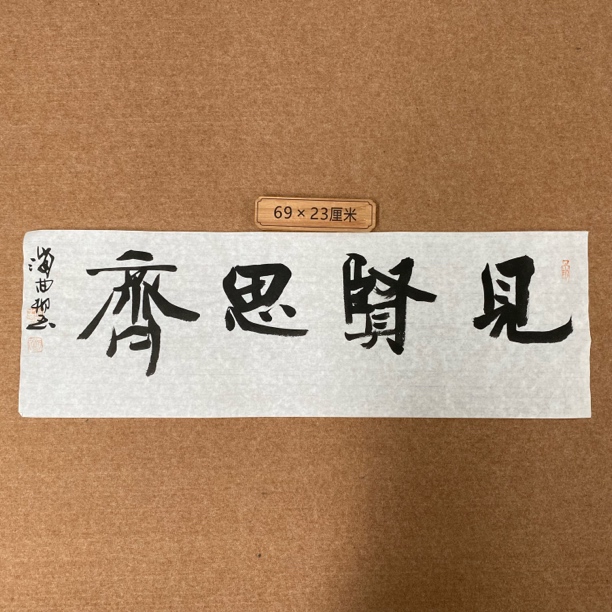 69×23厘米
見賢思齊